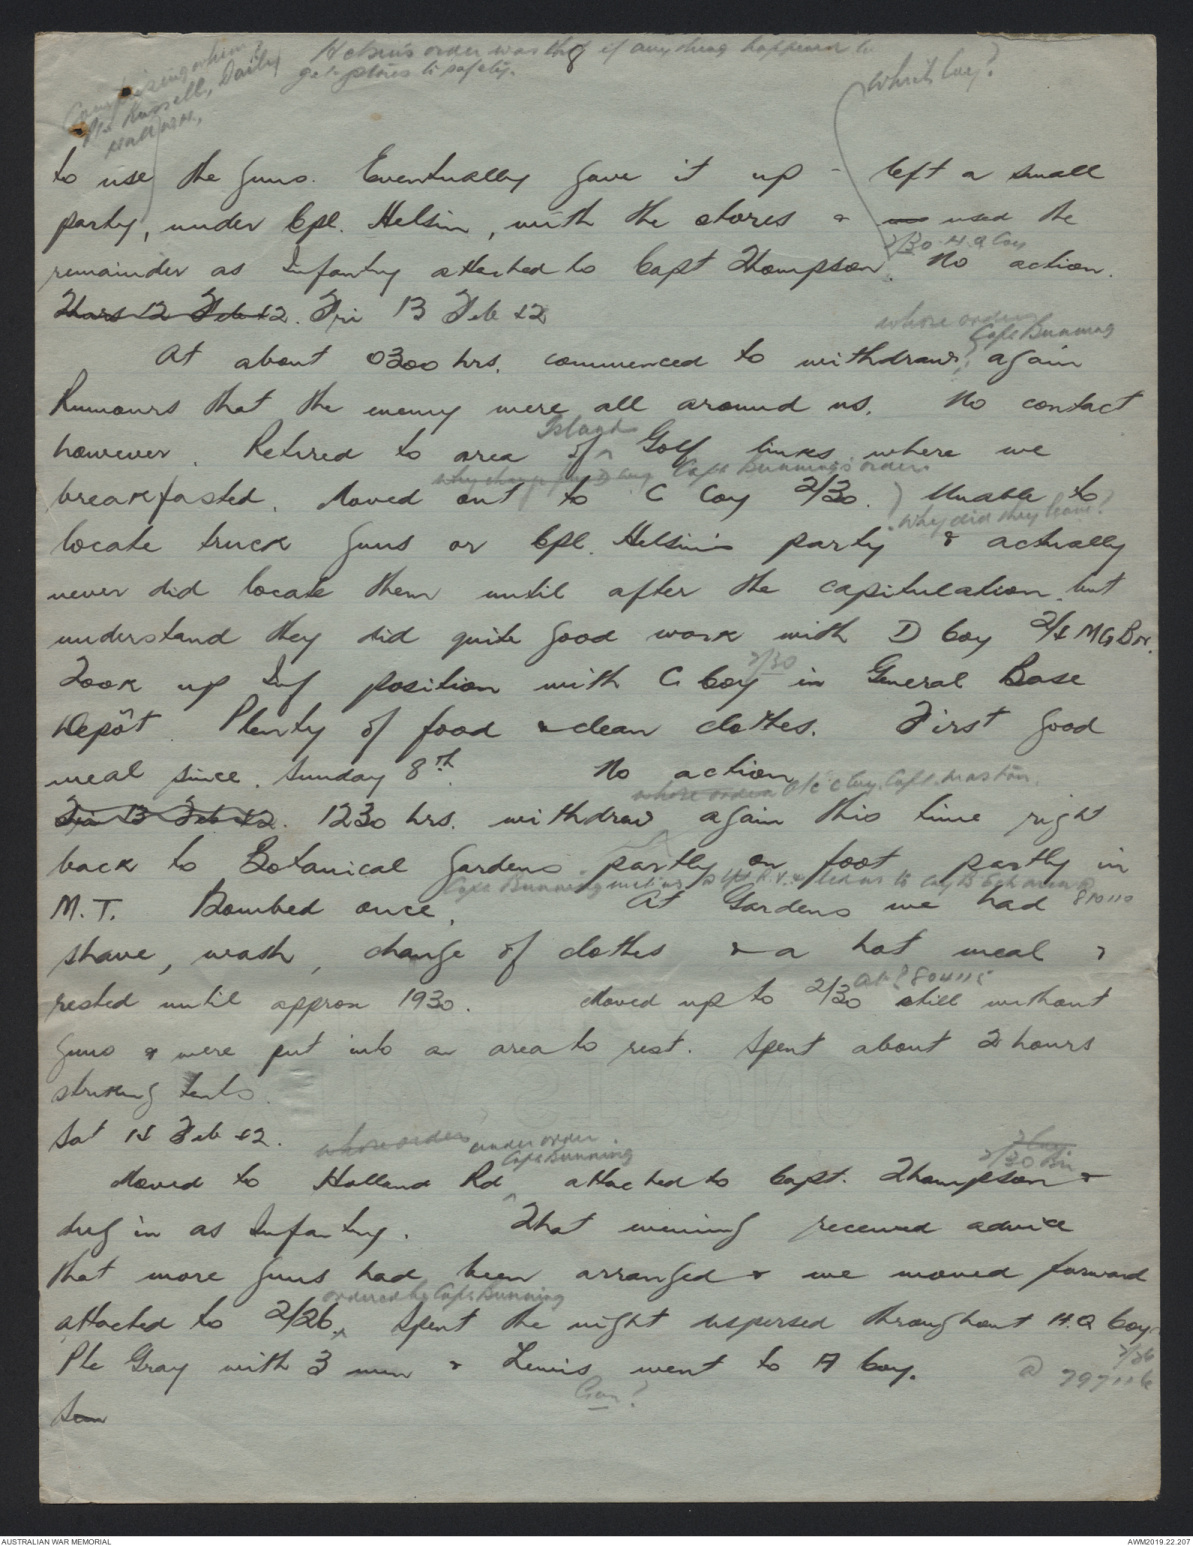 Comprising whom?
Pte Russell, Daily
Helsin's order was that if anything happened to
get stores to safety.
which Coy?
to use the guns. Eventually gave it up - left a small
party, under Cpl. Helsin, with the stores & used the
2/30 H.Q Coy
remainder as Infantry attached to Capt Thompson. No action.
Thurs 12 Feb 42. Fri 13 Feb 42
whose orders
Capt Bunning
At about 0300 hrs. commenced to withdraw? again
Rumours that the enemy were all around us. No contact
however. Retired to area of Golf links where we
Capt Bunning's orders
breakfasted. Moved out to C Coy 2/30. Unable to
why did they leave?
locate truck guns or Cpl. Helsin's party & actually
never did locate them until after the capitulation but
understand they did quite good work with D Coy 2/4 MG Bn.
2/30
Took up Inf position with C Coy in General Base
Depôt. Plenty of food & clean clothes. First good
meal since Sunday 8th. No action
whose orders O/C C Coy. Capt. Maston.
Fri 13 Feb 42. 1230 hrs. withdrew again this time right
back to Botanical Gardens partly on foot partly in
Capt Bunning met us @ R.V. & led us to Coy B Ech area @
810110
M.T. Bombed once. At Gardens we had
shave, wash, change of clothes & a hot meal &
at ? 804115
rested until approx 1930. Moved up to 2/30 still without
guns & were put into an area to rest. Spent about 2 hours
striking tents.
Sat 14 Feb 42.
whose orders under order
Capt Bunning
2/30 Bn
Moved to Holland Rd attached to Capt. Thompson &
dug in as Infantry. That evening received advice
that more guns had been arranged & we moved forward
ordered by Capt Bunning
attached to 2/26. Spent the night dispersed throughout H.Q Coy.
2/26
Pte Gray with 3 men & Lewis went to A Coy.
@ 797116
Gun?
AUSTRALIAN WAR MEMORIAL
AWM2019.22.207